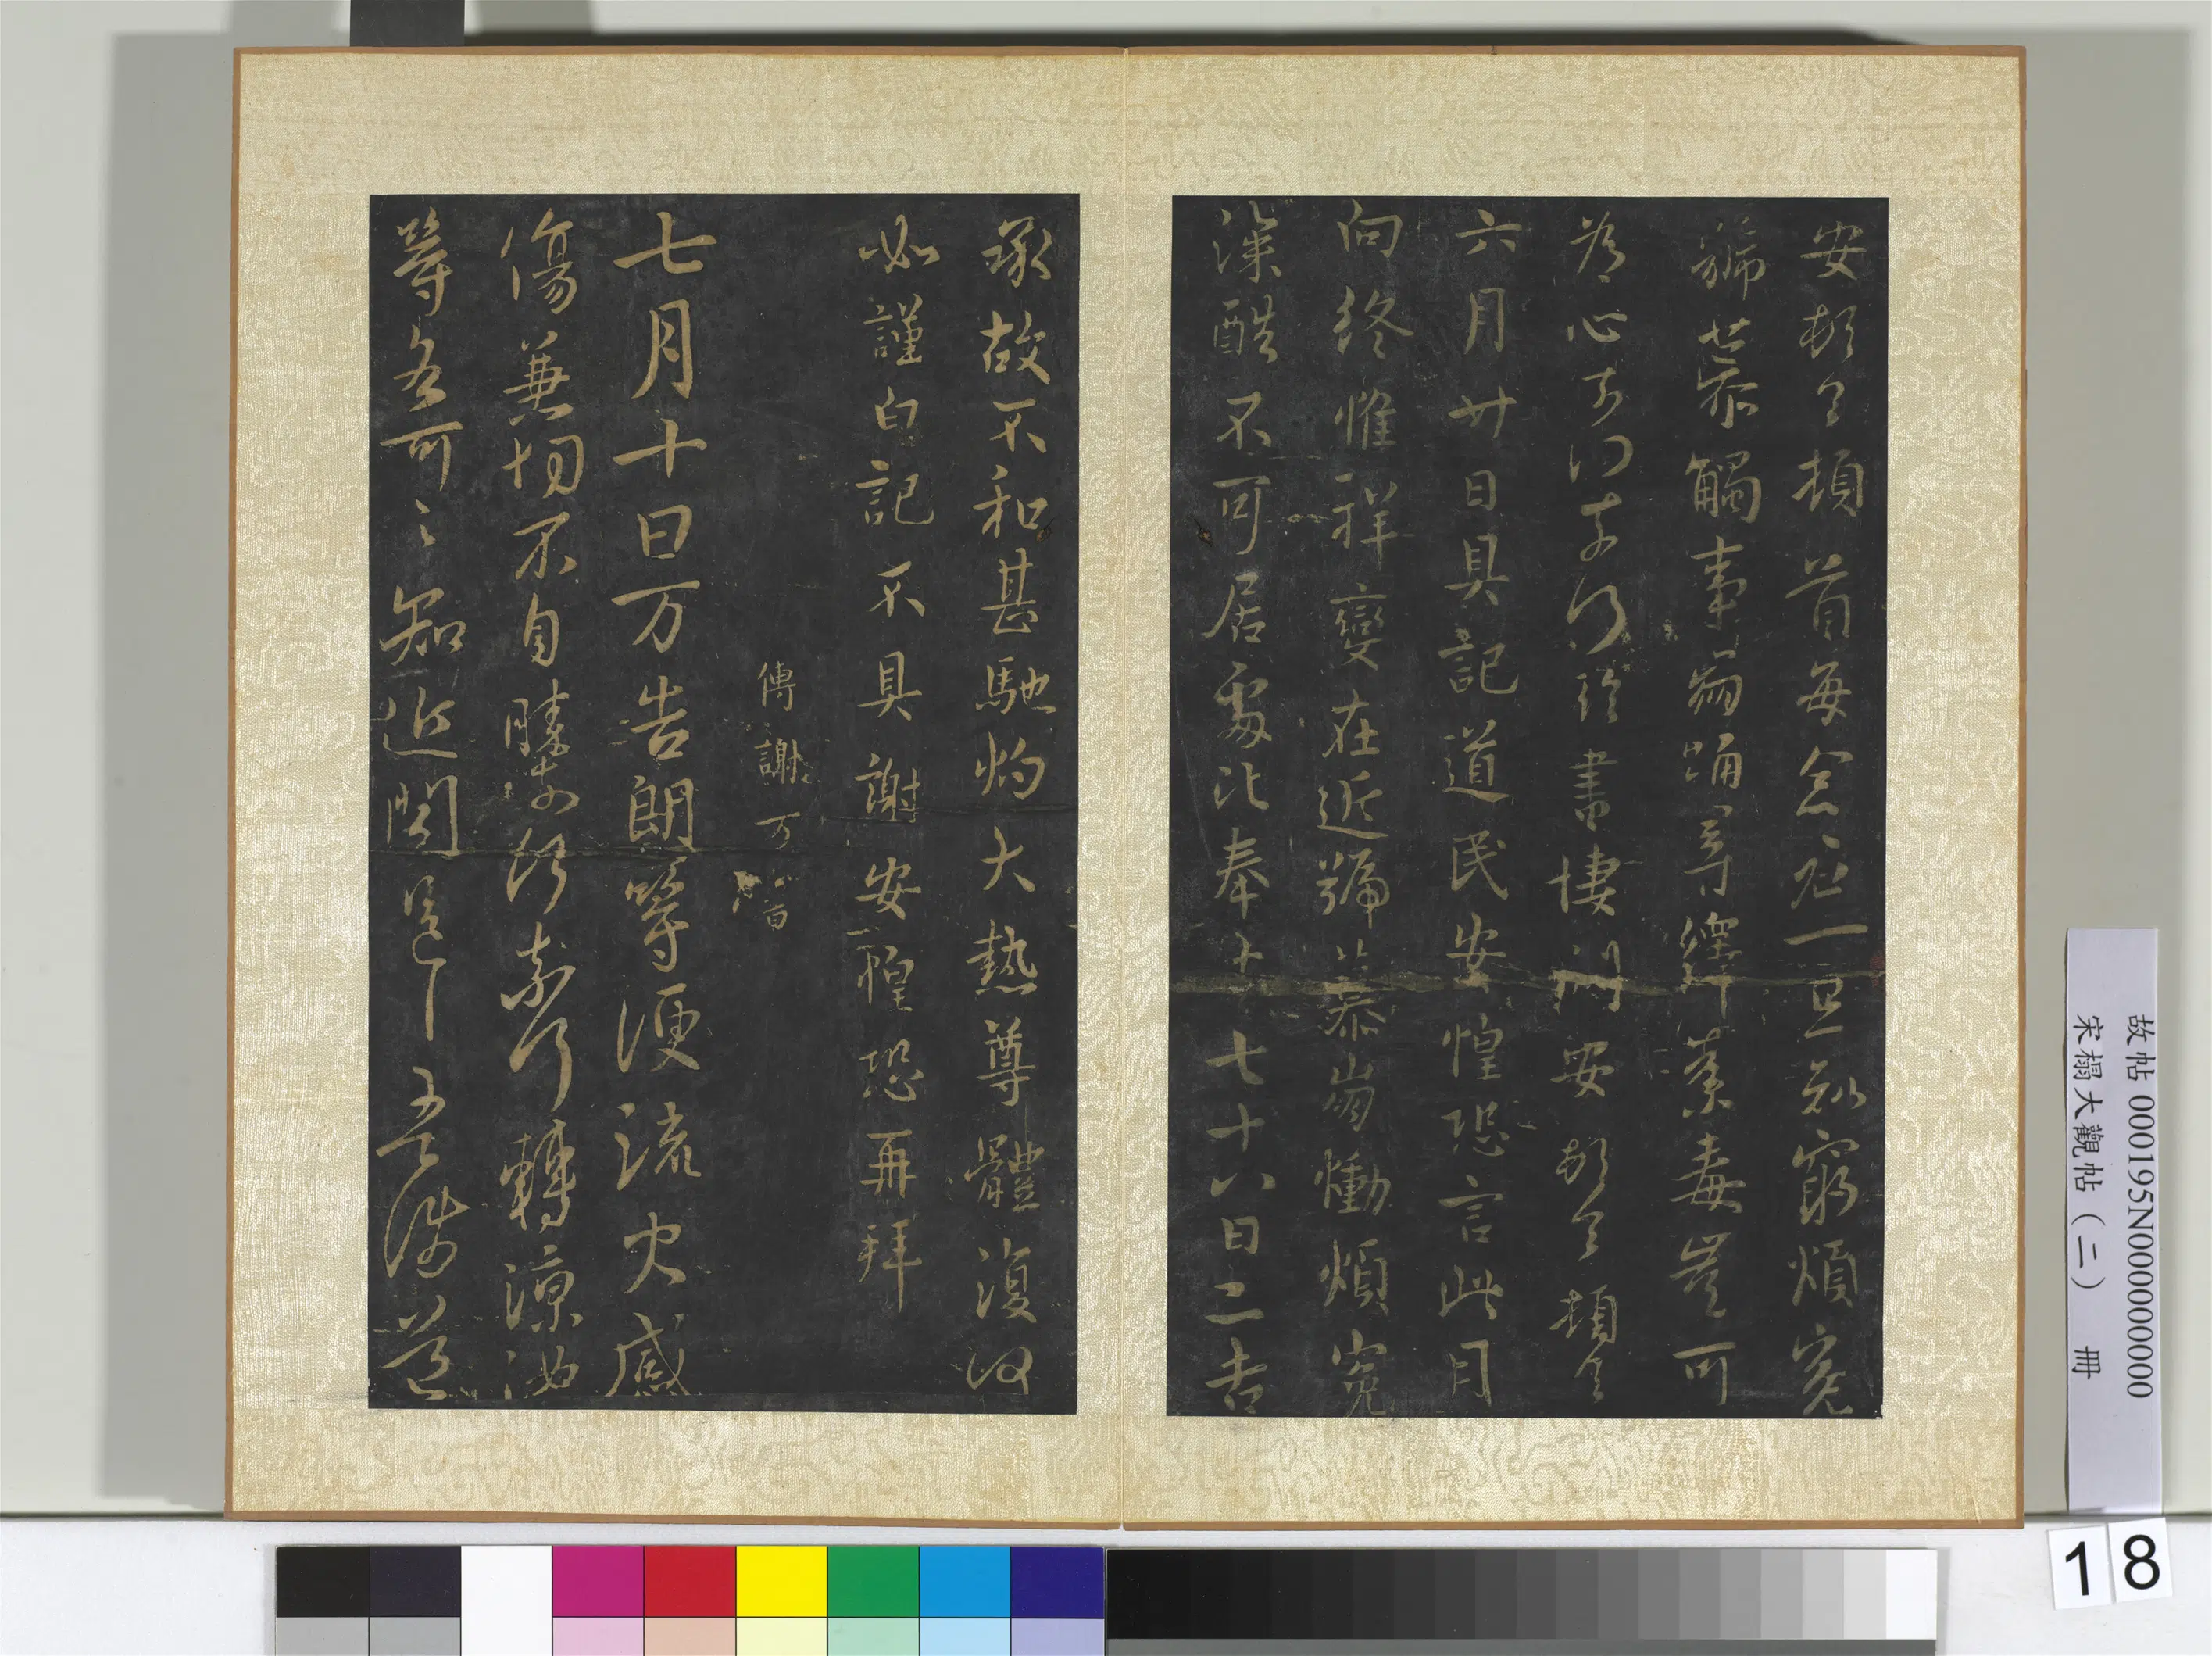 安頓々頓首每念君一旦知窮煩冤
號慕觸事崩踊尋繹荼毒豈可
為心奈何奈何臨書悽悶安頓々頓々
六月廿日具記道民安惶恐言此月
向終惟祥變在近號慕崩慟煩冤
深酷不可居處比奉十七十八日二告
承故不和甚馳灼大熱尊體復何
如謹白記不具謝安惶恐再拜
傳謝万書
七月十日万告朗等便流火感
傷兼切不自勝奈何奈何轉涼汝
等各可々知近聞
故帖 000195N000000000
宋榻大觀帖（二） 冊
18